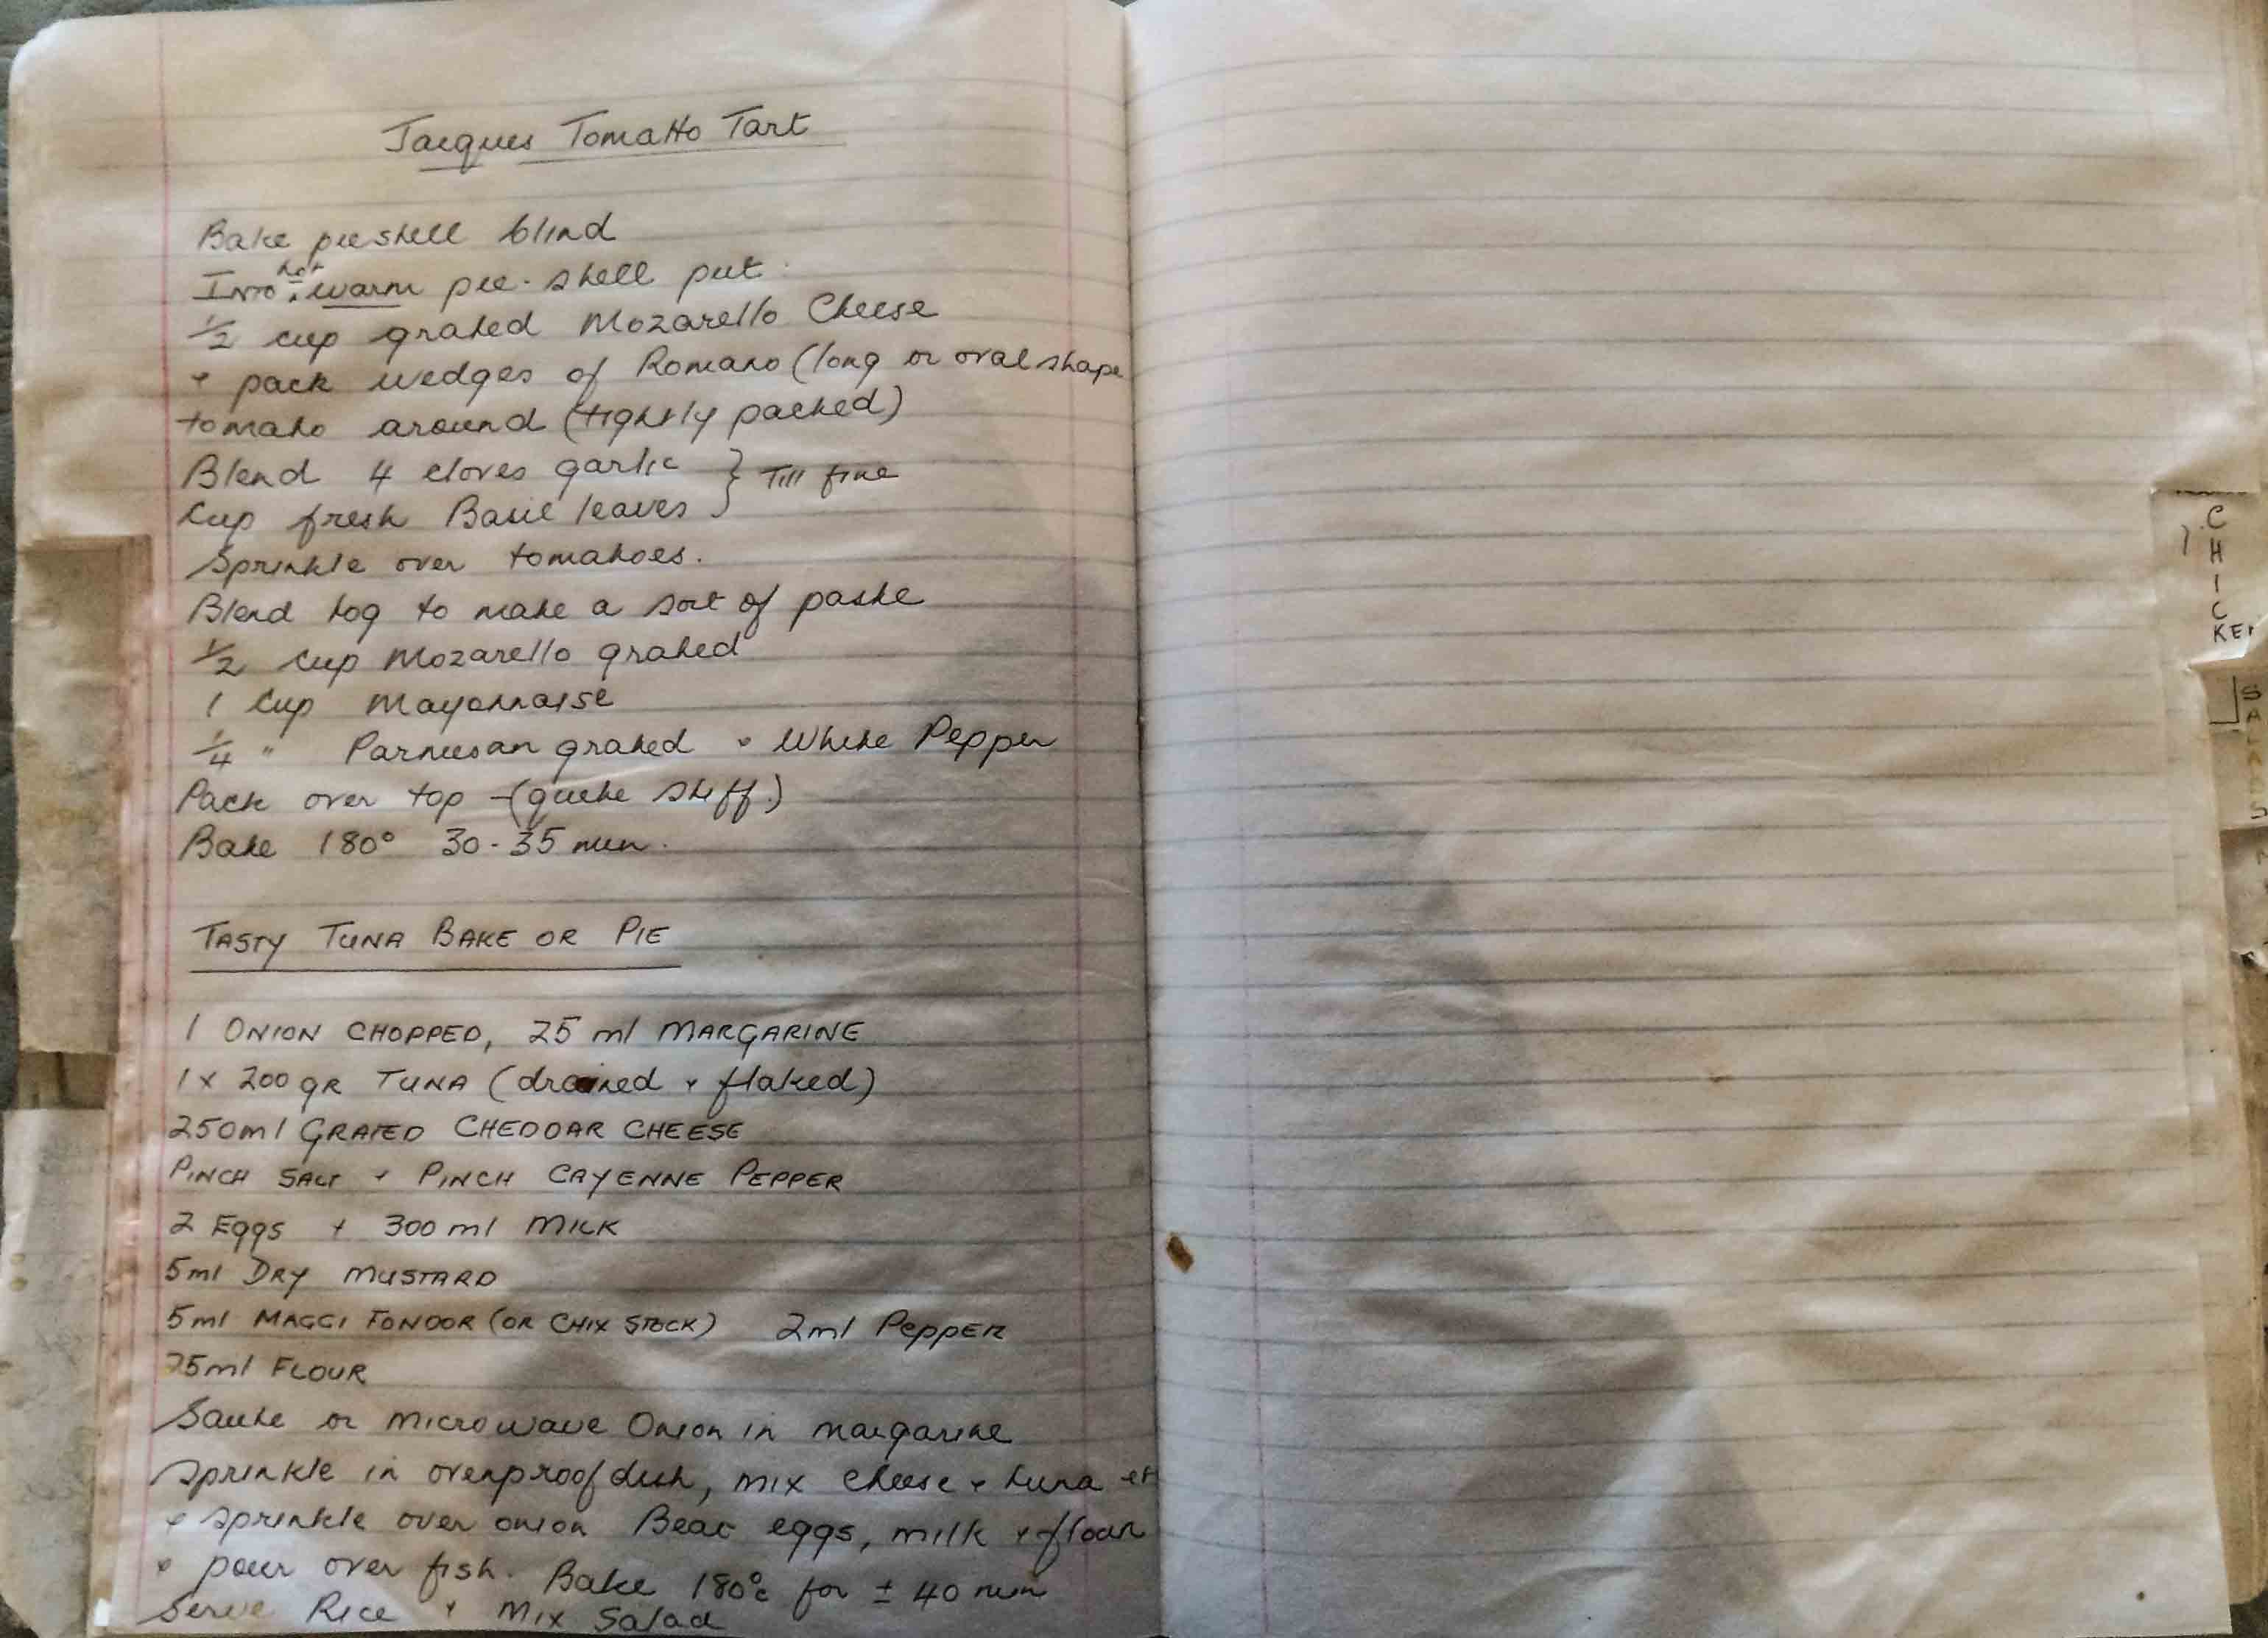 Jacques Tomatto Tart
Bake pieshell blind
hot
Into warm pie-shell put
1/2 cup grated Mozarello Cheese
+ pack wedges of Romano (long or oval shape
tomato around (tightly packed)
Blend 4 cloves garlic } Till fine
Cup fresh Basil leaves
Sprinkle over tomatoes.
Blend tog to make a sort of paste
1/2 Cup Mozarello grated
1 Cup Mayonnaise
1/4 " Parmesan grated + White Pepper
Pack over top - (quite stiff.)
Bake 180° 30-35 min.
TASTY TUNA BAKE OR PIE
1 ONION CHOPPED, 25 ml MARGARINE
1 x 200 gr TUNA (drained + flaked)
250ml GRATED CHEDDAR CHEESE
PINCH SALT + PINCH CAYENNE PEPPER
2 Eggs + 300 ml MILK
5ml DRY MUSTARD
5ml MAGGI FONDOR (OR CHIX STOCK) 2ml PEPPER
25ml FLOUR
Saute or microwave Onion in margarine
Sprinkle in ovenproof dish, mix cheese + tuna
+ sprinkle over onion Beat eggs, milk + flour
+ pour over fish. Bake 180°c for ± 40 min
Serve Rice + Mix Salad
C
H
I
C
KEN
S
A
L
A
D
S